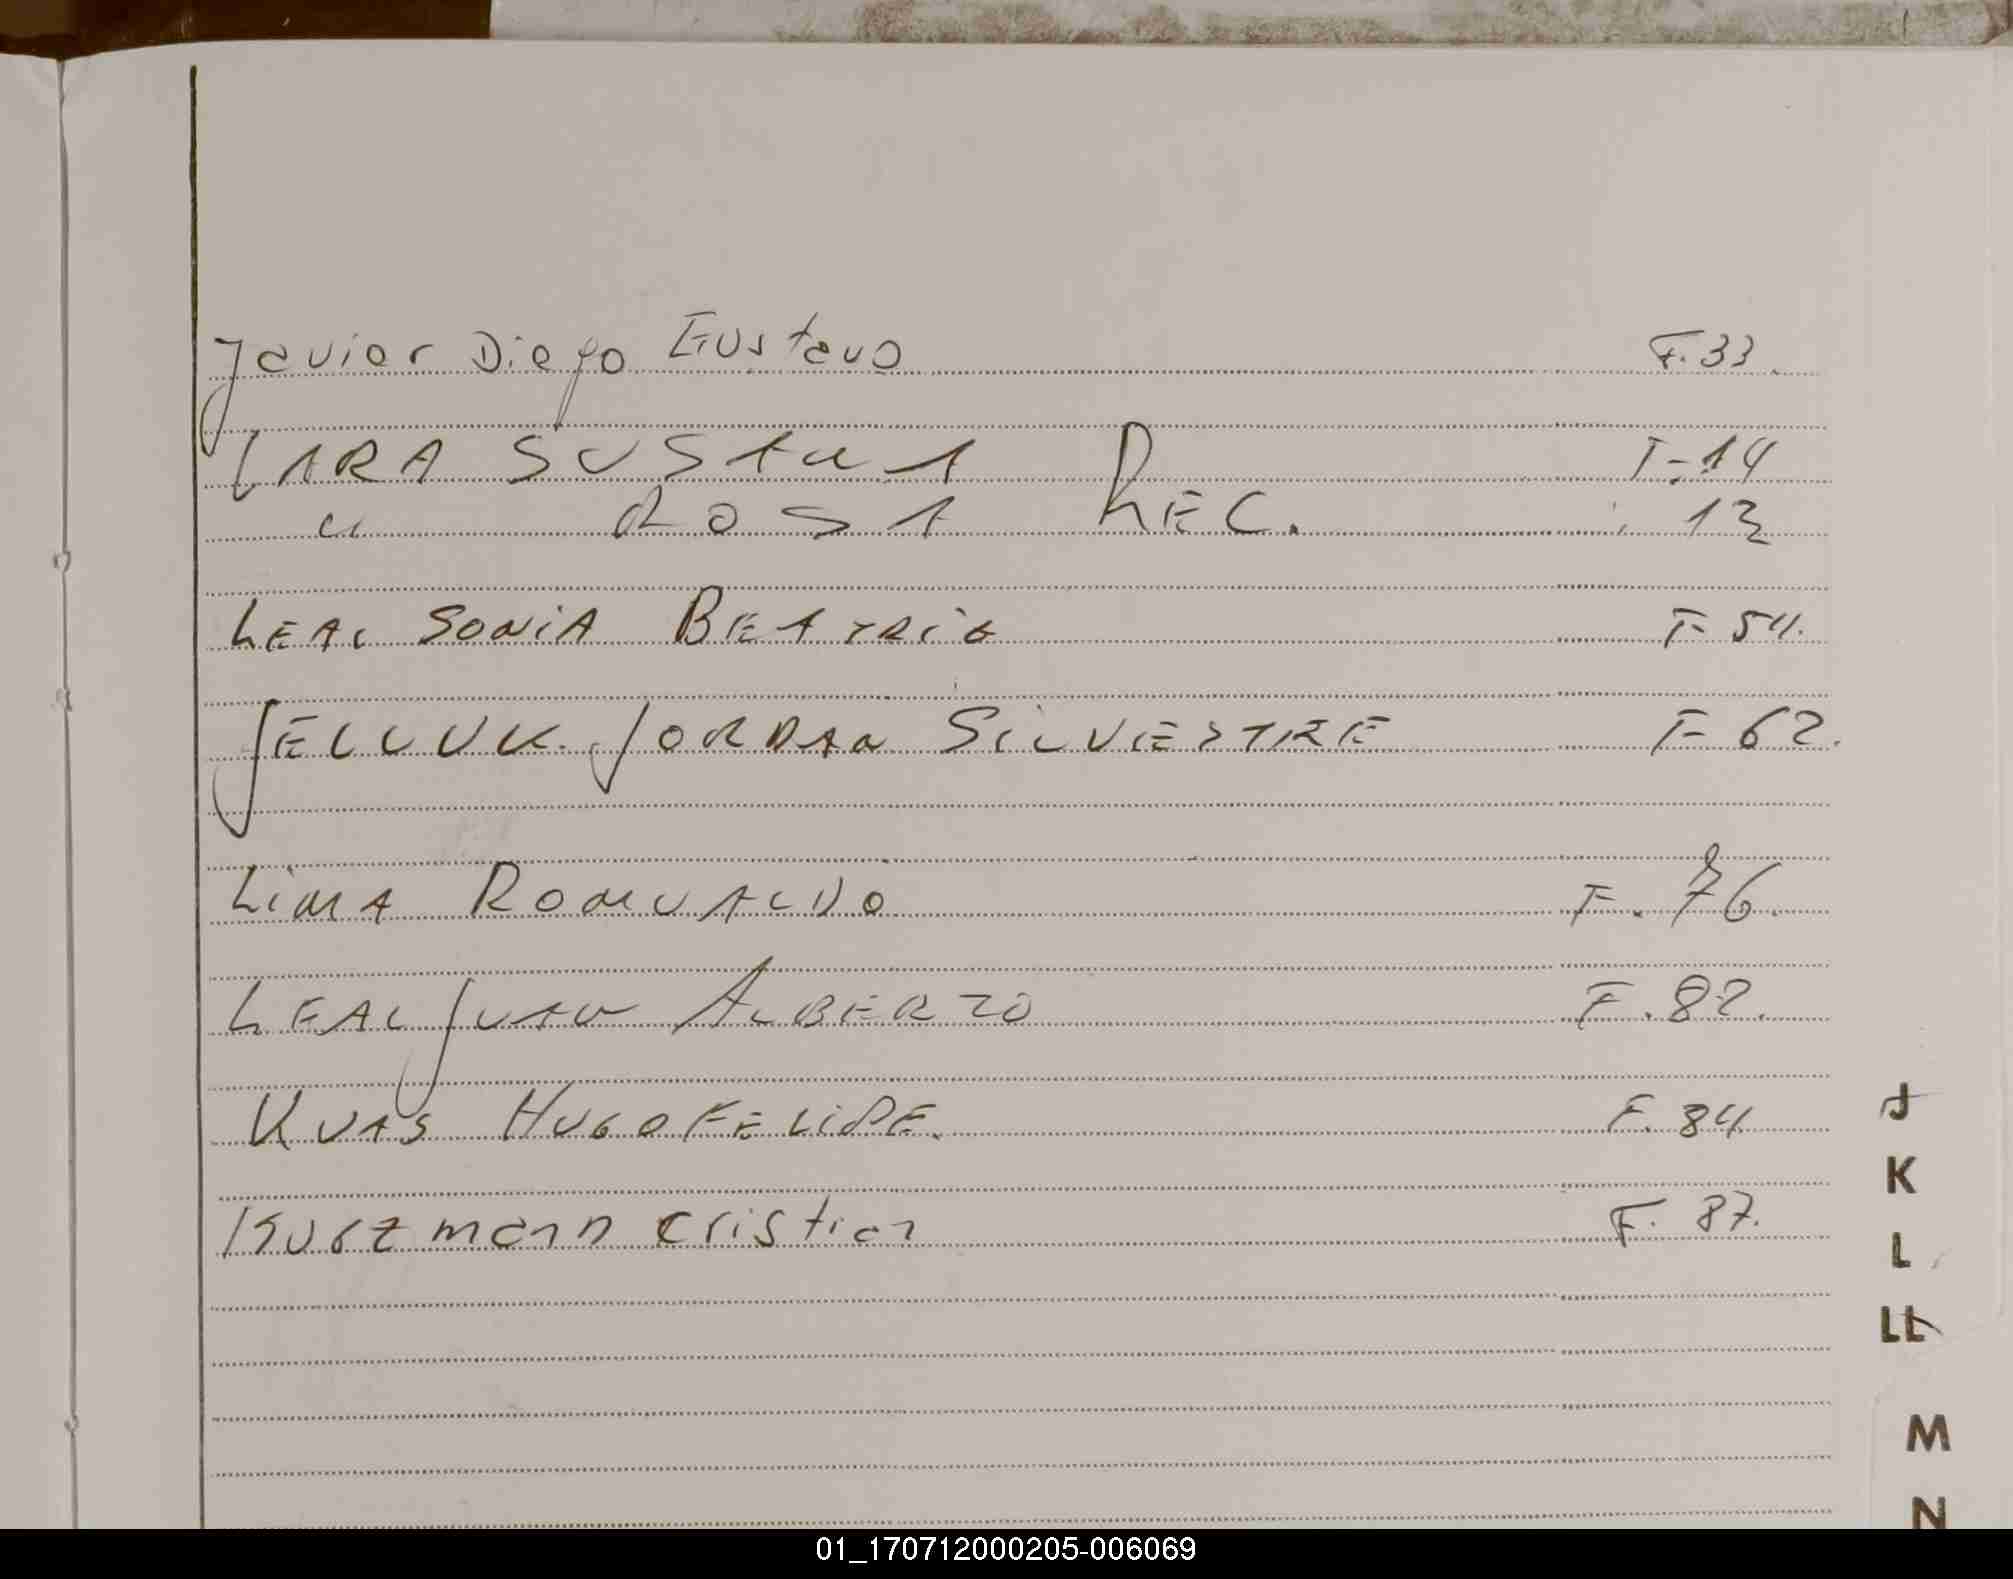 Javier Diego Gustavo F. 33.
LARA SUSANA REC. F-14
" ROSA : 13
LEAL SONIA BEATRIZ F- 54.
JELLUK JORDAN SILVESTRE F- 62.
LIMA ROMUALDO F. 76.
LEAL JUAN ALBERTO F. 82.
KUAS HUGO FELIPE. F. 84
Kurzmann Cristian F. 87.
J
K
L
LL
M
N
01_170712000205-006069